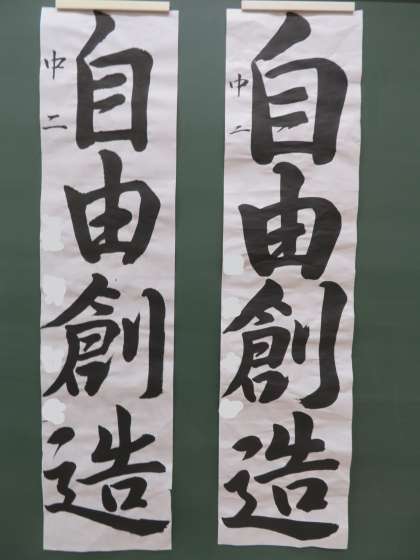 自由創造
中二
自由創造
中二